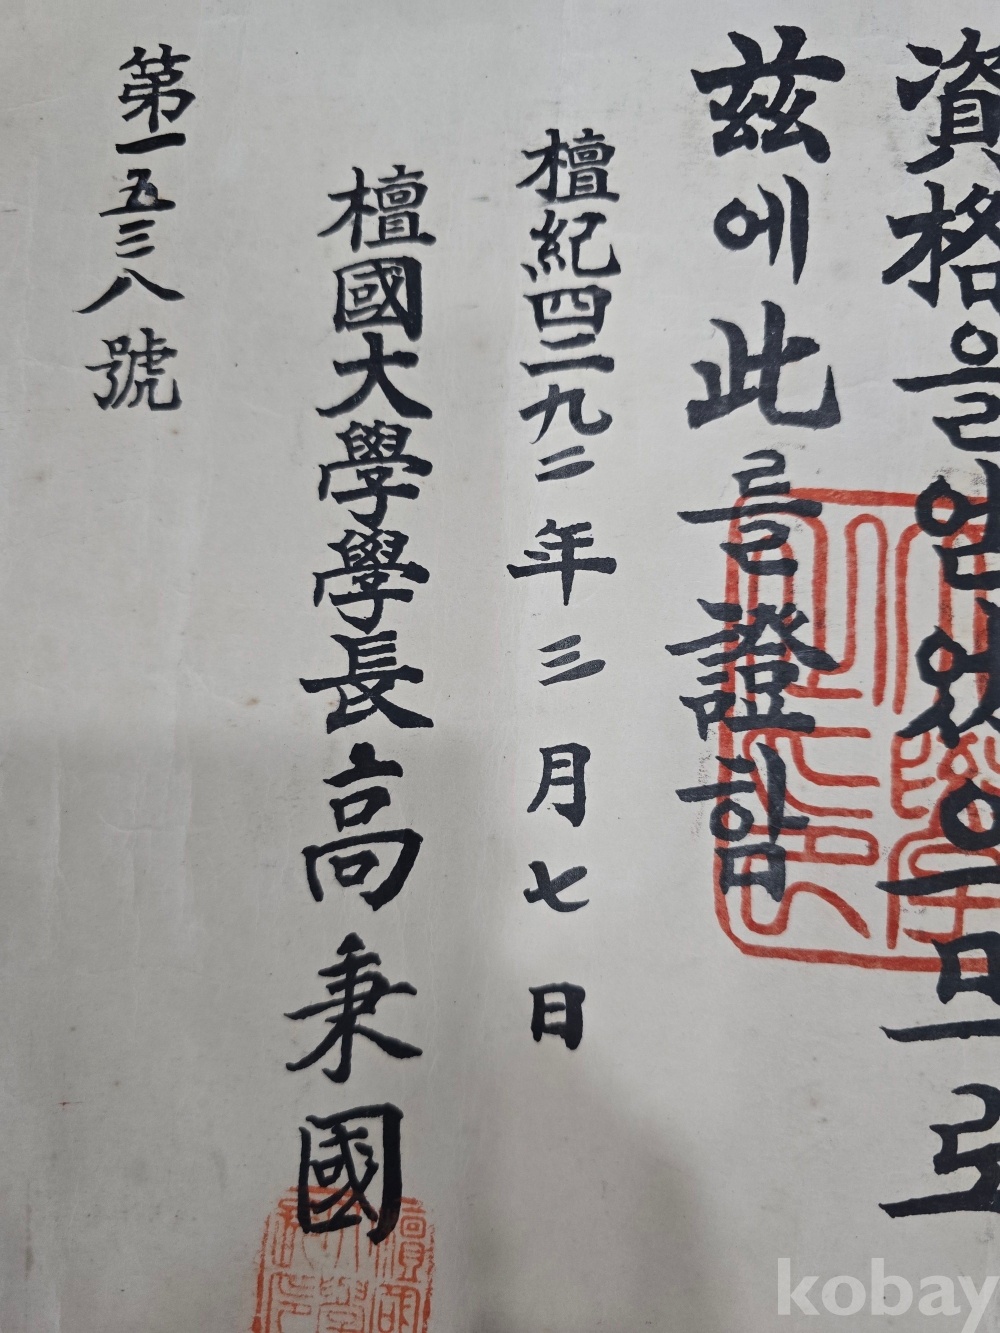 資格을얻었으므로
茲에此를證함
檀紀四二九二年三月七日
檀國大學學長高秉國
第一五三八號
kobay